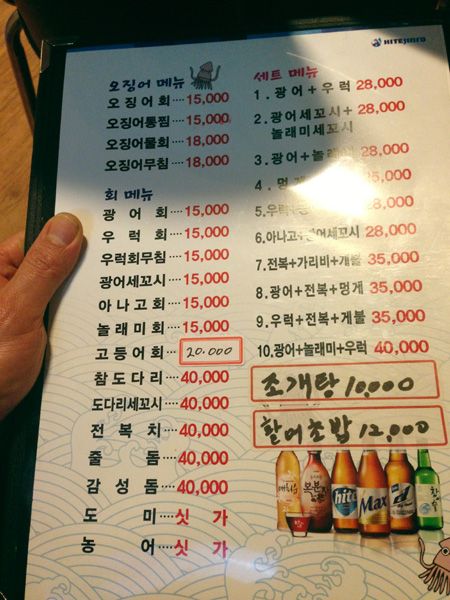 HITEJINRO
오징어 메뉴
오 징 어 회 ···· 15,000
오징어통찜 ···· 15,000
오징어물회 ···· 18,000
오징어무침 ···· 18,000
회 메뉴
광 어 회 ···· 15,000
우 럭 회 ···· 15,000
우럭회무침 ···· 15,000
광어세꼬시 ···· 15,000
아 나 고 회 ···· 15,000
놀 래 미 회 ···· 15,000
고 등 어 회 ···· 20.000
참 도 다 리 ···· 40,000
도다리세꼬시 ···· 40,000
전 복 치 ···· 40,000
줄 돔 ···· 40,000
감 성 돔 ···· 40,000
도 미 ···· 싯 가
농 어 ···· 싯 가
세트 메뉴
1. 광 어 + 우 럭 28,000
2. 광어세꼬시+ 28,000
놀래미세꼬시
3. 광어+놀래미 28,000
4. 멍게 28,000
5.우럭+ 28,000
6.아나고+광어세꼬시 28,000
7.전복+가리비+개불 35,000
8. 광어+전복+멍게 35,000
9. 우럭+전복+게불 35,000
10.광어+놀래미+우럭 40,000
조개탕 10,000
활어초밥 12,000
매화수
복분
hite
Max
d
참
슬